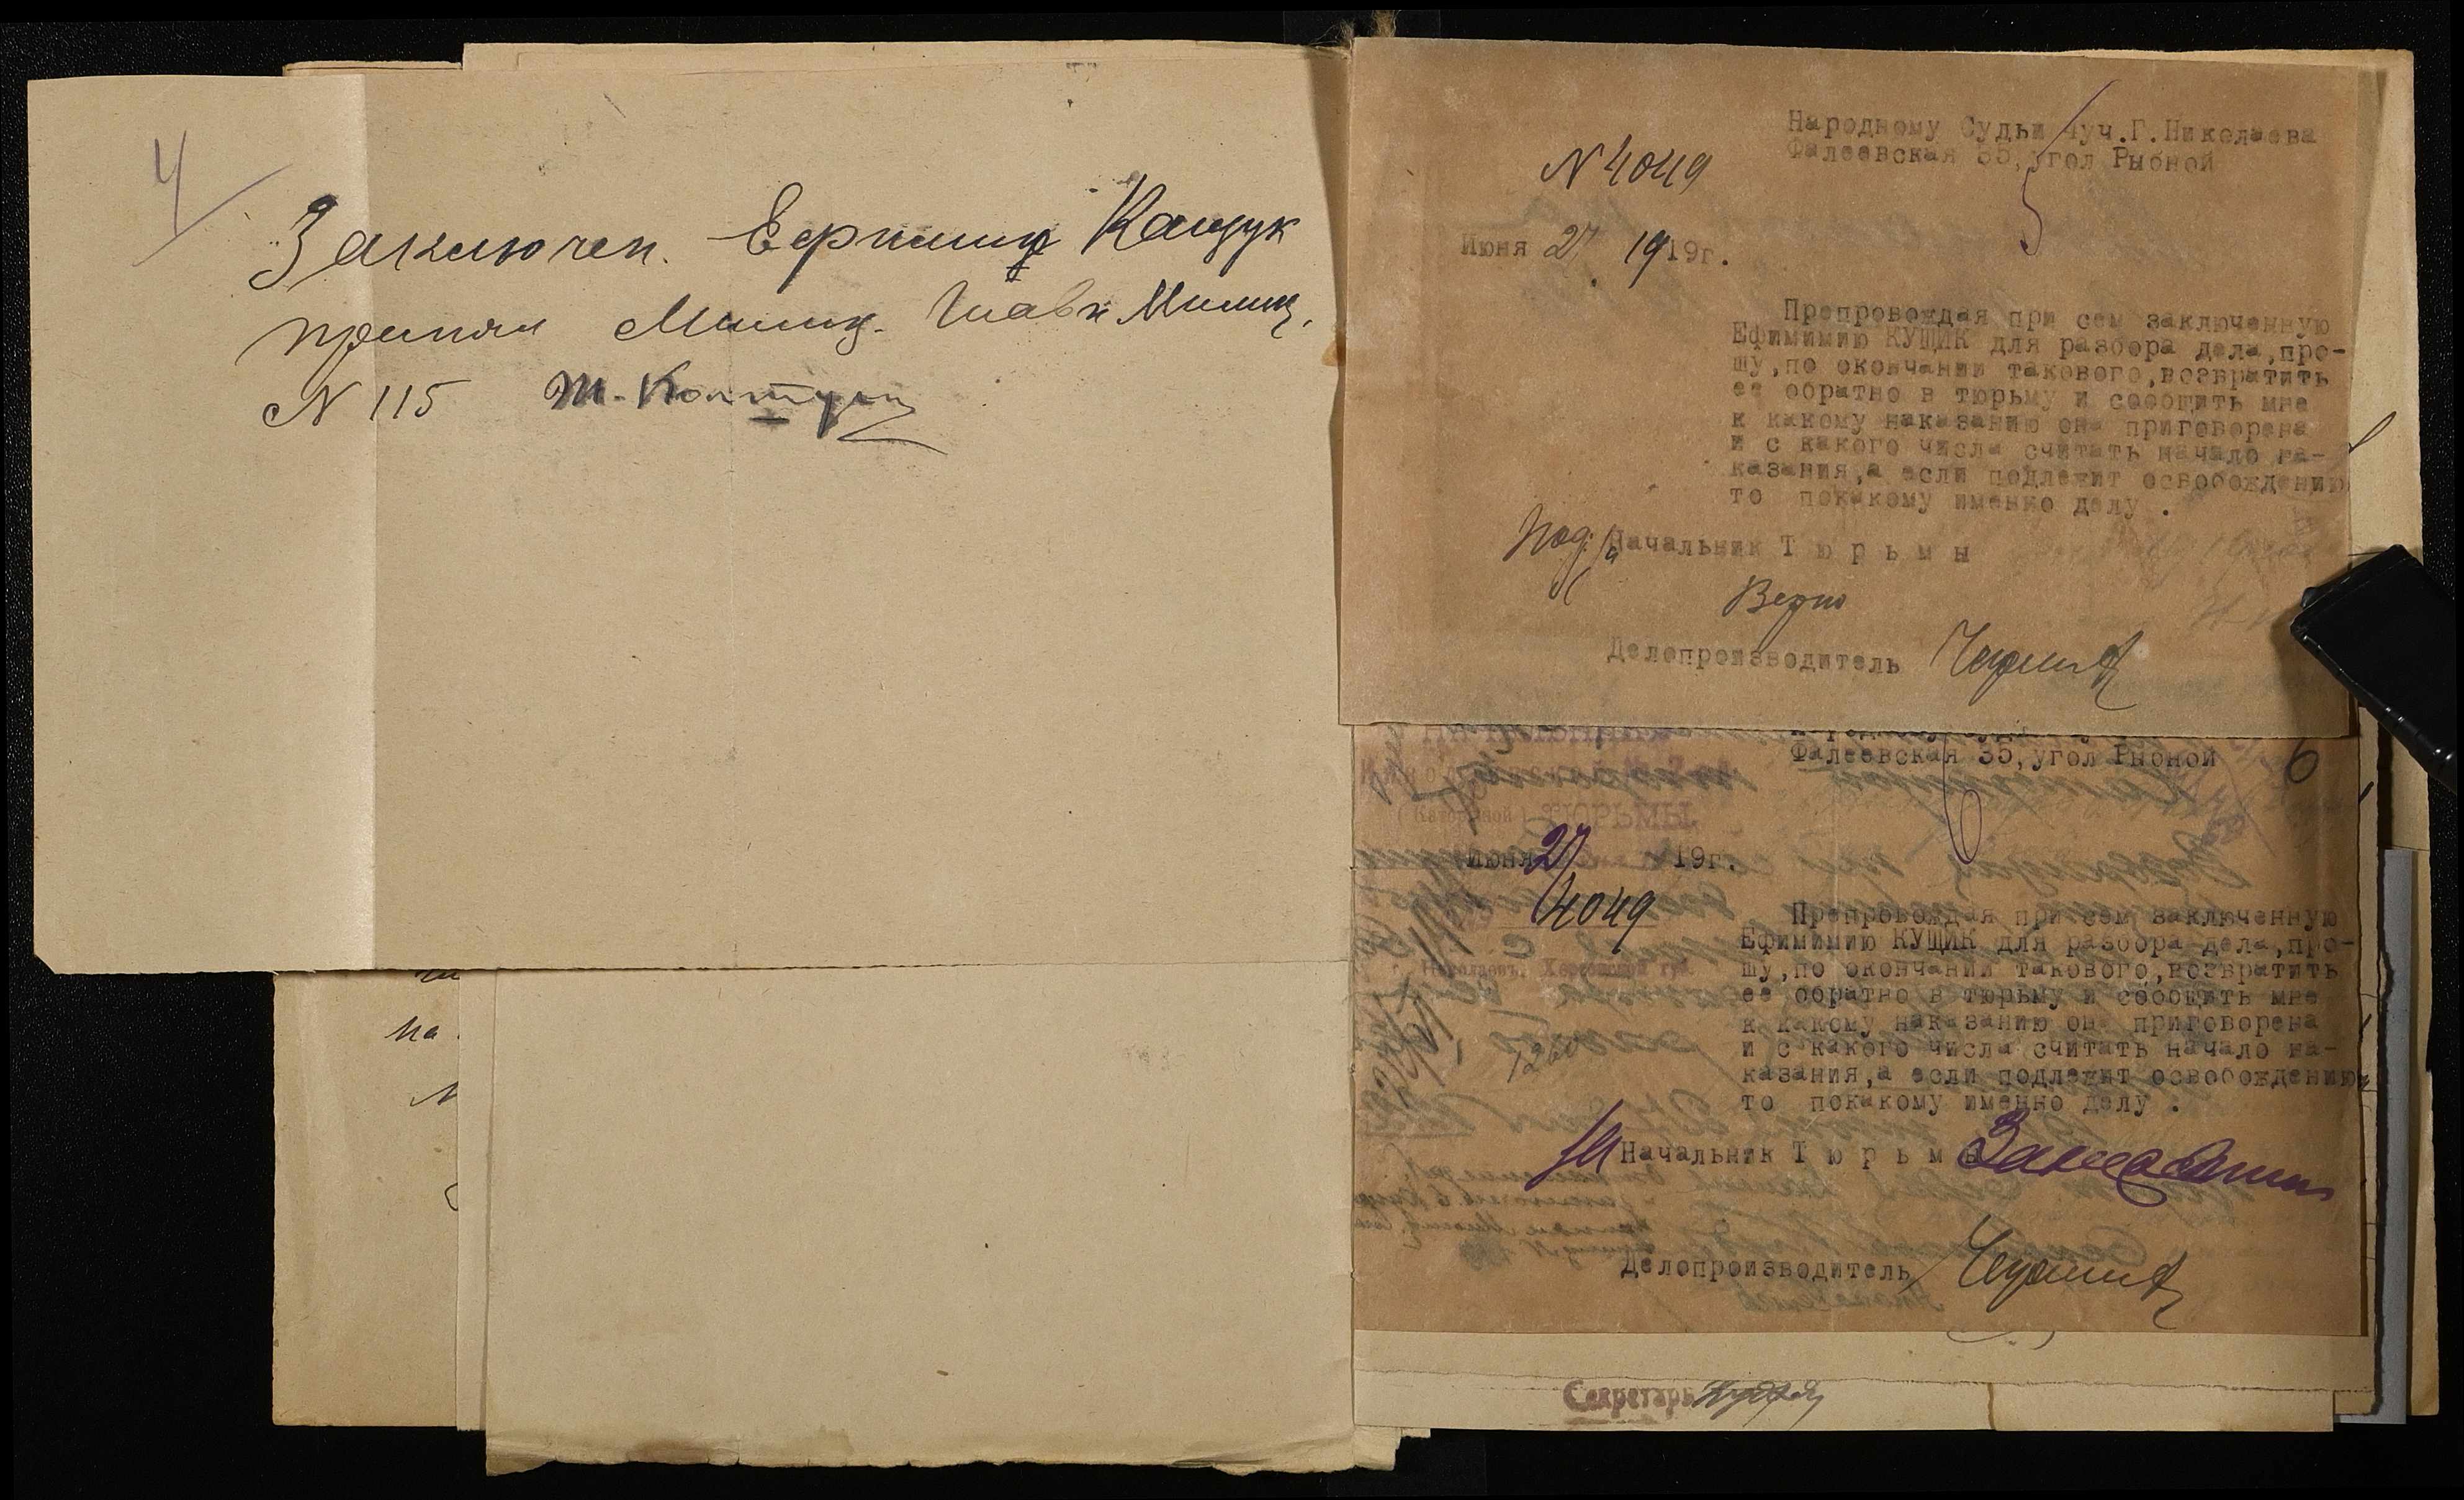 4
Заключен. Ефимию Кащук
принял Милиц. Главн Милиц.
N 115 Т. Колтун
5
Народному Судьи 4уч.Г.Николаева
Фалеевская 35,угол Рыбной
N 4049
Июня 27 1919г.
Препровождая при сем заключенную
Ефимимию КУЩИК для разбора дела,про-
шу,по окончании такового,возвратить
ее обратно в тюрьму и сообщить мне
к какому наказанию она приговорена
и с какого числа считать начало на-
казания,а если подлежит освобождению
то покакому именно делу .
Под: за Начальник Тюрьмы
Верно
Делопроизводитель
6
Фалеевская 35,угол Рыбной
6
ТЮРЬМЫ
(Каторжной)
Июня 27 19г.
4049
Николаевъ, Херсонской губ.
Препровождая при сем заключенную
Ефимимию КУЩИК для разбора дела,про-
шу,по окончании такового,возвратить
ее обратно в тюрьму и сообщить мне
к какому наказанию она приговорена
и с какого числа считать начало на-
казания,а если подлежит освобождению
то покакому именно делу .
1260
за Начальник Тюрьмы
Делопроизводитель
Секретарь
на